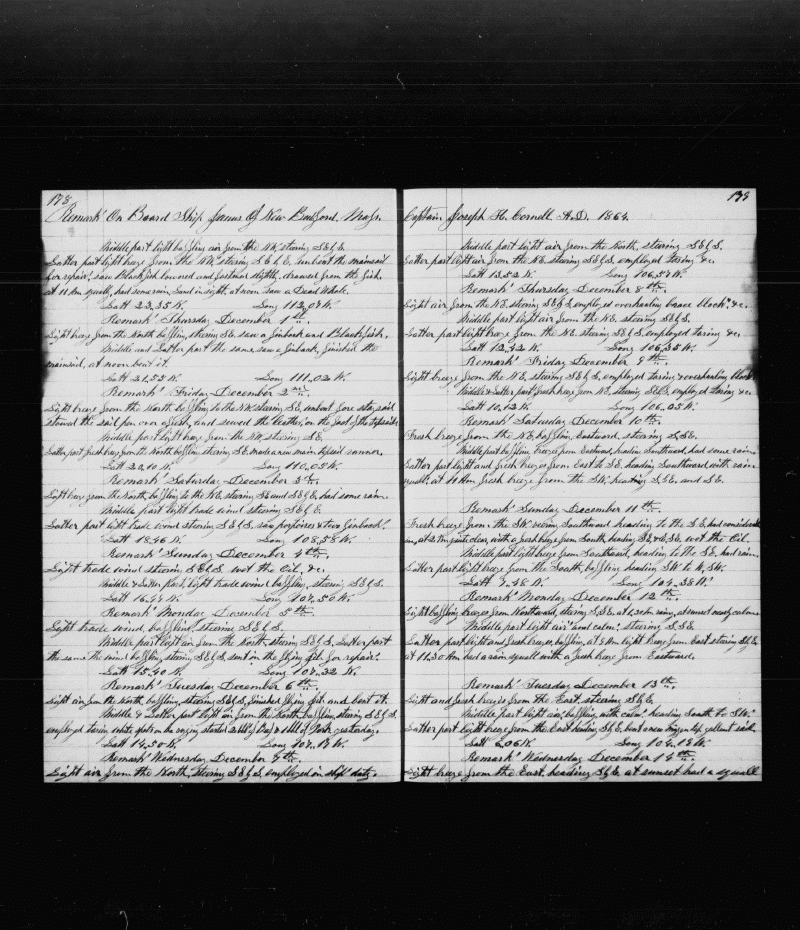 178
Remark's On Board Ship Janus Of New Bedford Mass.
Middle part light baffling air from the NW, steering S E & E.
Latter part light breeze from the NW, steering S E & E, unbent the mainsail
for repair's, saw Blackfish lowered and fastened
at 11 Am squally, had some rain, Land in sight, at noon saw a Dead Whale.
Latt 23,35 N. Long 112,07 W.
Remark's Thursday December 1st.
Light breeze from the North baffling, steering SE. saw a finback and Blackfish.
Middle and Latter part the same, saw a finback, finished the
mainsail, at noon bent it.
Latt 21,55 N. Long 111,02 W.
Remark's Friday December 2nd.
Light breeze from the North baffling to the NW, steering SE. unbent fore staysail
and sewed the leather, on the foot of the topsails.
Middle part light breeze from the NW, steering S E.
Latter part fresh breeze from the North baffling, steering SE. made a new main topsail
Latt 20,10 N. Long 110,05 W.
Remark's Saturday December 3rd.
Light breeze from the North, baffling to the NE, steering SE and S E & E, had some rain.
Middle part light trade wind steering S E & E.
Latter part light trade wind steering S E & S, saw porpoises & two finback's.
Latt 18,46 N. Long 108,58 W.
Remark's Sunday December 4th.
Light trade wind steering S E & S. wet the Oil, &c.
Middle & Latter part, light trade wind baffling, steering S E & S.
Latt 16,44 N. Long 107,50 W.
Remark's Monday December 5th.
Light trade wind, baffling, steering S E & S.
Middle part light air from the North, steering S E & S, Latter part
the same the wind baffling, steering S E & S, sent in the flying jib for repair's.
Latt 15,40 N. Long 107,32 W.
Remark's Tuesday December 6th.
Light air from the North, baffling, steering S E & S, finished flying jib and bent it.
Middle & Latter part light air from the North baffling, steering S E & S,
employed taring spots on the rigging started 2 bbl of & 1 bbl of Pork yesterday.
Latt 14,50 N. Long 107,17 W.
Remark's Wednesday December 7th.
Light air from the North, steering S E & S, employed in ship's duty.
179
Captain Joseph H. Cornell A.D. 1864.
Middle part light air from the North, steering S E & S.
Latter part light air from the NE. steering S E & S, employed taring &c.
Latt 13,52 N. Long 106,57 W.
Remark's Thursday December 8th.
Light air from the NE. steering S E & S, employed overhauling brace block's &c.
Middle part light air from the NE, steering S E & S.
Latter part light breeze from the NE. steering S E & S, employed taring &c.
Latt 12,42 N. Long 106,35 W.
Remark's Friday December 9th.
Light breeze from the NE, steering S E & S, employed taring, & overhauling block's
Middle & Latter part fresh breeze from NE, steering S E & S, employed taring &c.
Latt 10,12 N. Long 106,05 W.
Remark's Saturday December 10th.
Fresh breeze from the NE. baffling Eastward, steering S, S E.
Middle part light baffling breezes from Eastward, heading Southward, had some rain.
Latter part light and fresh breezes from East to SE. heading Southward with rain
squall's at 10 Am fresh breeze from the SW. heading S, S E. and S E.
Remark's Sunday December 11th.
Fresh breeze from the SW. Southward heading to the S E, had considerable
rain, at 2 Pm quite clear, with a fresh breeze from South, heading wet the Oil.
Middle part light breeze from Southward, heading to the S E. had rain.
Latter part light breeze from the South, baffling heading SW to W, SW.
Latt 7,48 N. Long 104,38 W.
Remark's Monday December 12th.
Light baffling breezes from Northward, steering S, S E. at 1,30 Pm rainy, at sunset nearly calm.
Middle part light air's and calm's, steering S, S E.
Latter part light and fresh breezes, baffling, at 5 Am light breeze from East steering S & E.
at 11,30 Am had a rain squall with a fresh breeze from Eastward.
Remark's Tuesday December 13th.
Light and fresh breezes from the East, steering S & E.
Middle part light air's, baffling, with calm's, heading South to SW.
Latter part light breeze from the East heading S & E, bent a new mizen top gallant sail.
Latt 6,06 N. Long 104,17 W.
Remark's Wednesday December 14th.
Light breeze from the East, heading S & E. at sunset had a squall